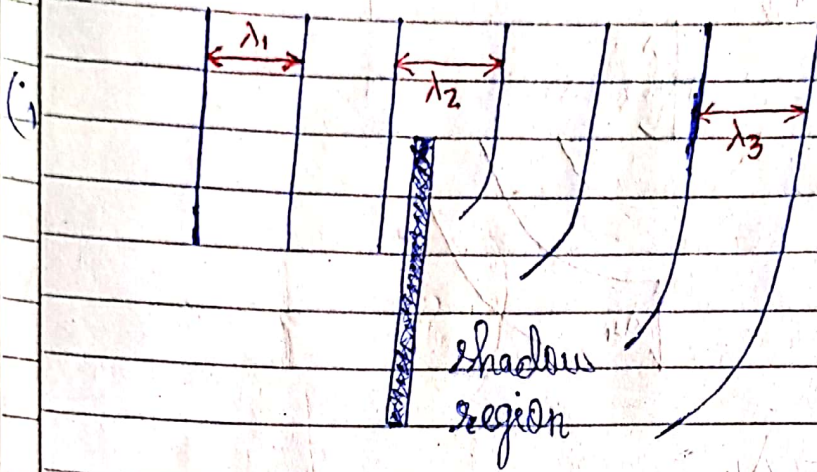 (i)
λ1
λ2
λ3
shadow
region